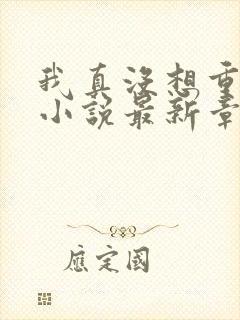 我真没想重
小说最新章
應定國